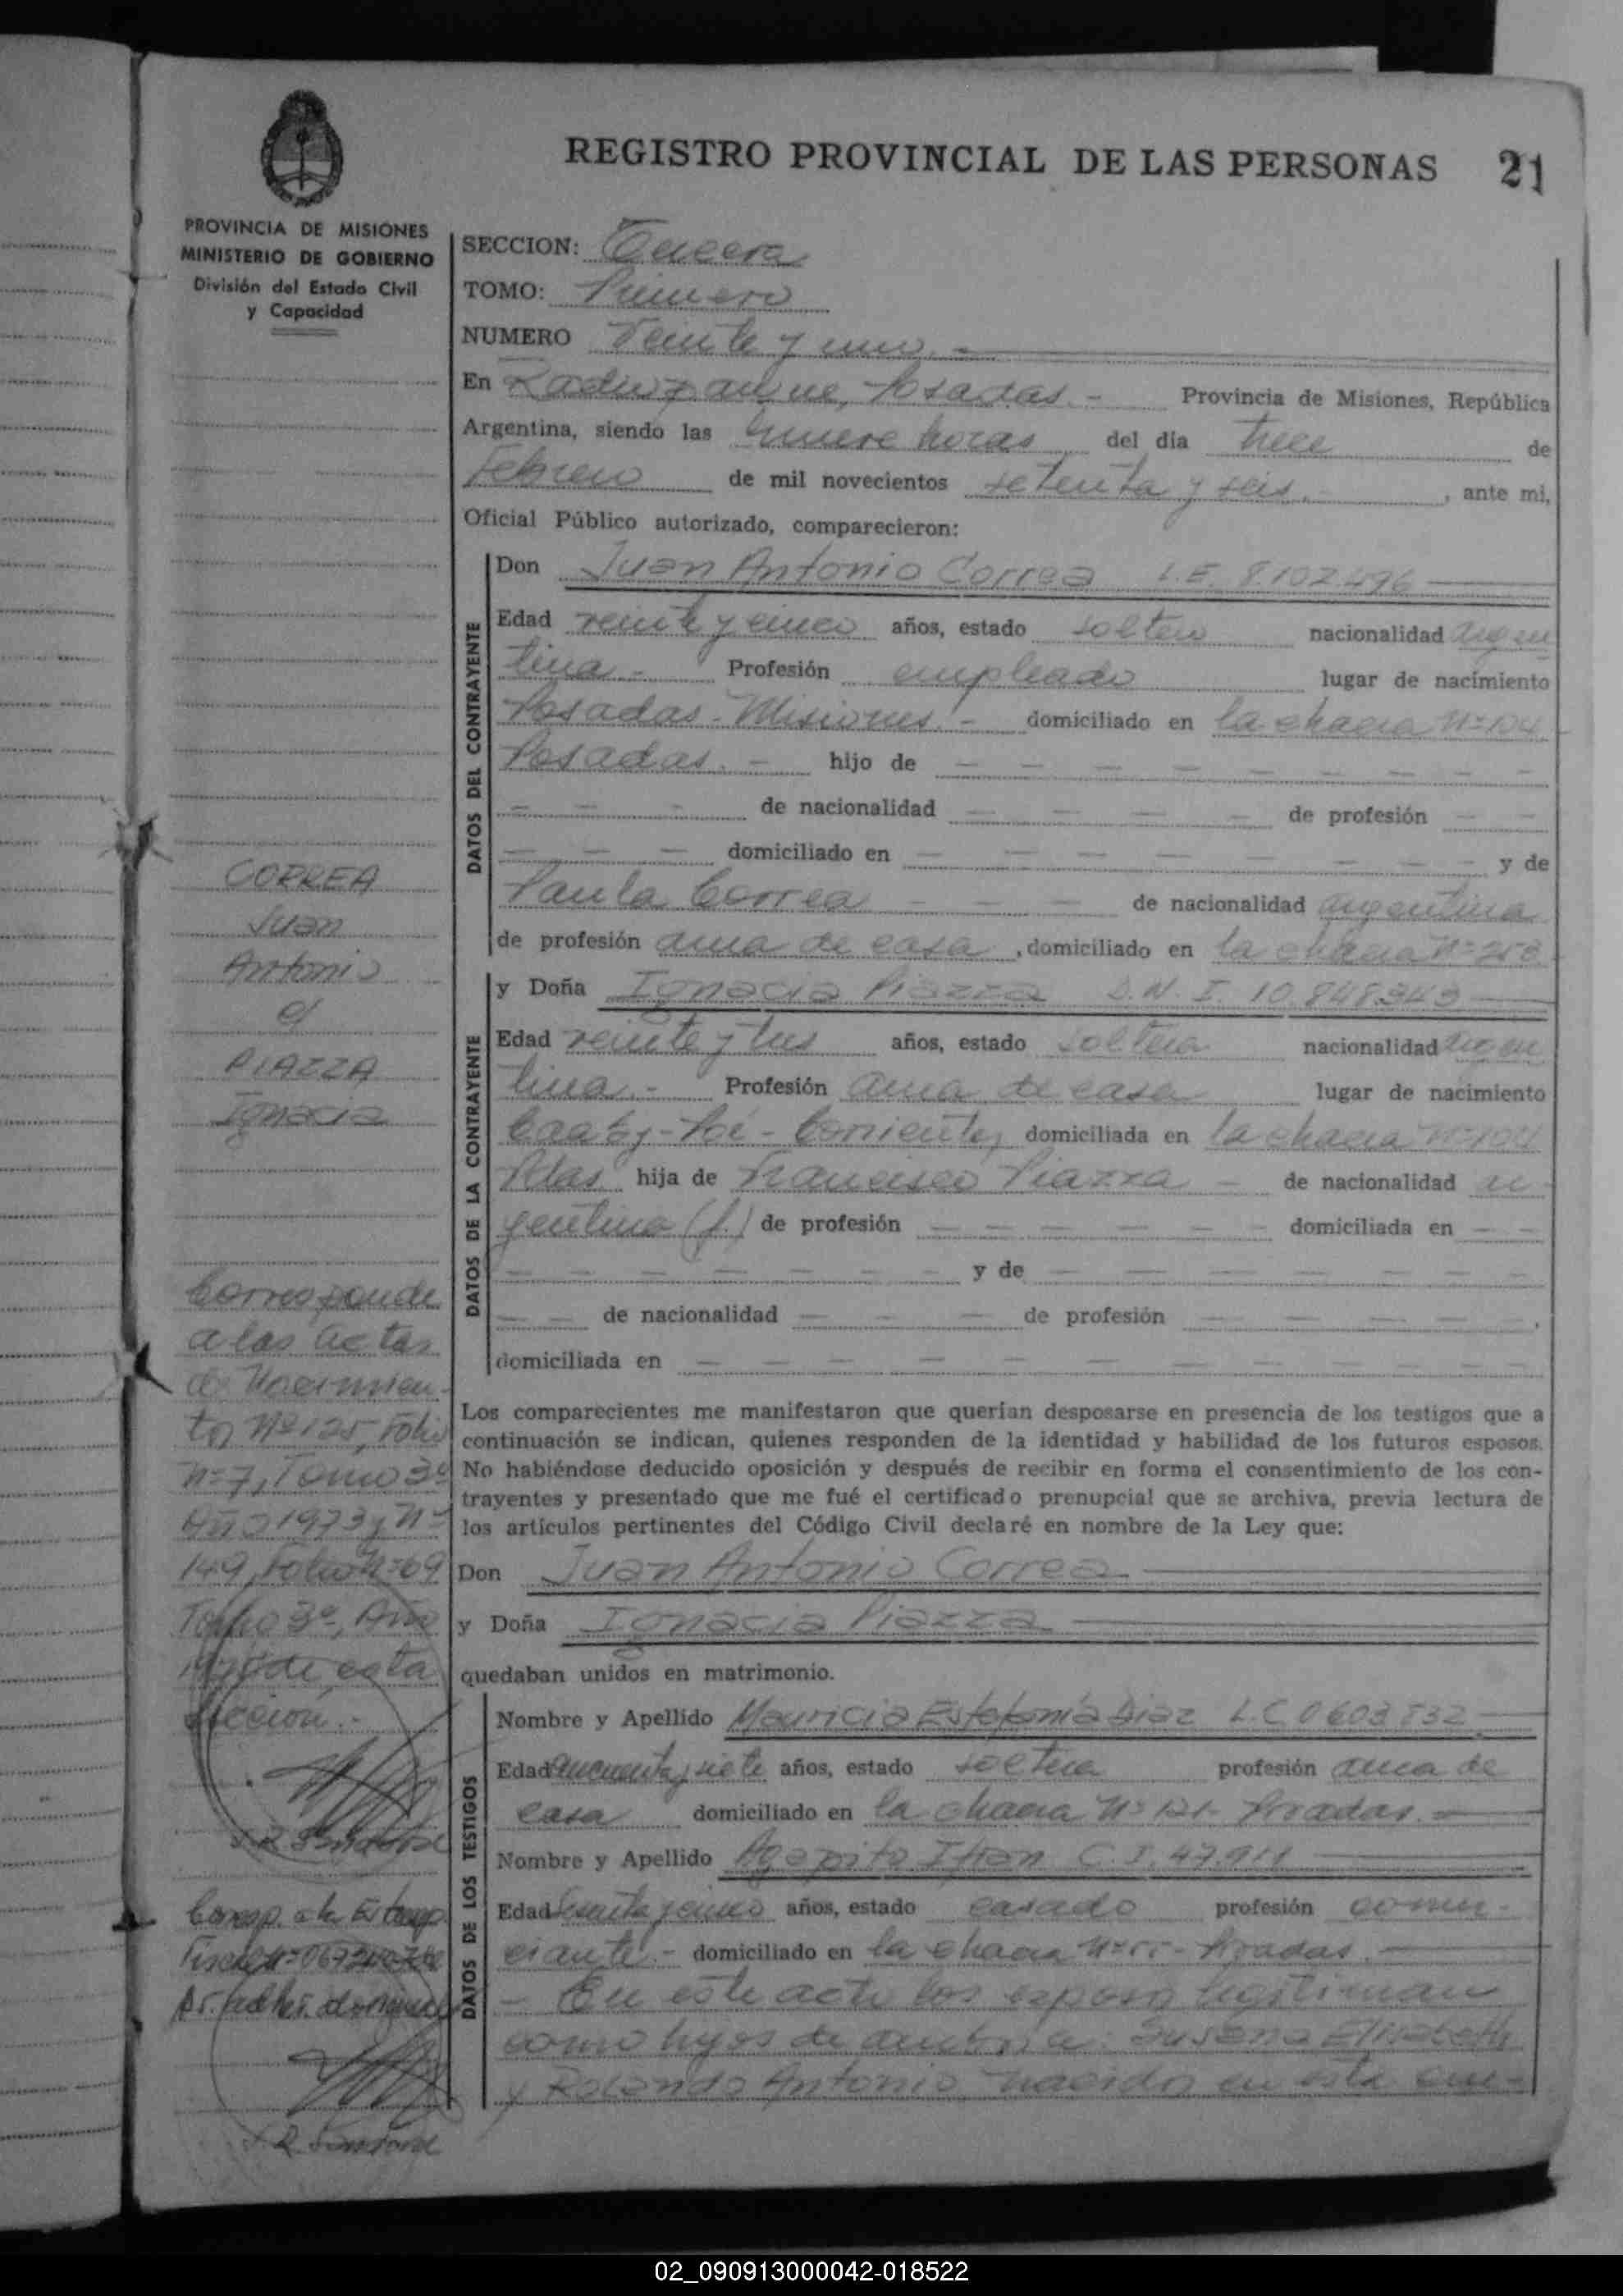 REGISTRO PROVINCIAL DE LAS PERSONAS 21
PROVINCIA DE MISIONES
MINISTERIO DE GOBIERNO
División del Estado Civil
y Capacidad
SECCION: Tercera
TOMO: Primero
NUMERO Veinte y uno.-
En Posadas.- Provincia de Misiones, República
Argentina, siendo las nueve horas del día trece de
Febrero de mil novecientos setenta y seis.- , ante mi,
Oficial Público autorizado, comparecieron:
DATOS DEL CONTRAYENTE
Don Juan Antonio Correa L.E. 8.102.496
Edad veinte y cinco años, estado soltero nacionalidad argen
tina.- Profesión empleado lugar de nacimiento
Posadas-Misiones.- domiciliado en la chacra Nº 104.
Posadas.- hijo de — — — — — — — —
— — — de nacionalidad — — — — de profesión — —
— — — domiciliado en — — — — — — — y de
Paula Correa — — — de nacionalidad argentina
de profesión ama de casa , domiciliado en la chacra Nº 253
DATOS DE LA CONTRAYENTE
y Doña Ignacia Piazza D.N.I. 10.848.949
Edad veinte y tres años, estado soltera nacionalidad argen
tina.- Profesión ama de casa lugar de nacimiento
Caaby-Poí-Corrientes, domiciliada en la chacra Nº 104
Pdas. hija de Francisco Piazza — de nacionalidad ar
gentino (f.) de profesión — — — — — — domiciliada en — —
— — — — — — — y de — — — — — — —
— — de nacionalidad — — — de profesión — — — — — ,
domiciliada en — — — — — — — — — — —
Los comparecientes me manifestaron que querían desposarse en presencia de los testigos que a
continuación se indican, quienes responden de la identidad y habilidad de los futuros esposos.
No habiéndose deducido oposición y después de recibir en forma el consentimiento de los con-
trayentes y presentado que me fué el certificado prenupcial que se archiva, previa lectura de
los artículos pertinentes del Código Civil declaré en nombre de la Ley que:
Don Juan Antonio Correa
y Doña Ignacia Piazza
quedaban unidos en matrimonio.
DATOS DE LOS TESTIGOS
Nombre y Apellido Mauricia Estefanía Diaz L.C. 0603832
Edad cincuenta y siete años, estado soltera profesión ama de
casa domiciliado en la chacra Nº 121- Posadas.-
Nombre y Apellido Agapito Ifran C.I. 47.911
Edad años, estado casado profesión comer-
ciante.- domiciliado en la chacra Posadas.-
- En este acto los esposos legitiman
como hijos de Susana Elisabeth
y Rolando Antonio, nacidos en esta
CORREA
Juan
Antonio
c/
PIAZZA
Ignacia
Corresponde
a las actas
de Nacimien-
to Nº 125, Folio
Nº 7, Tomo 3º
Año 1973 y Nº
149, Folio Nº 69
Tomo 3º, Año
de esta
Sección.-
02_090913000042-018522